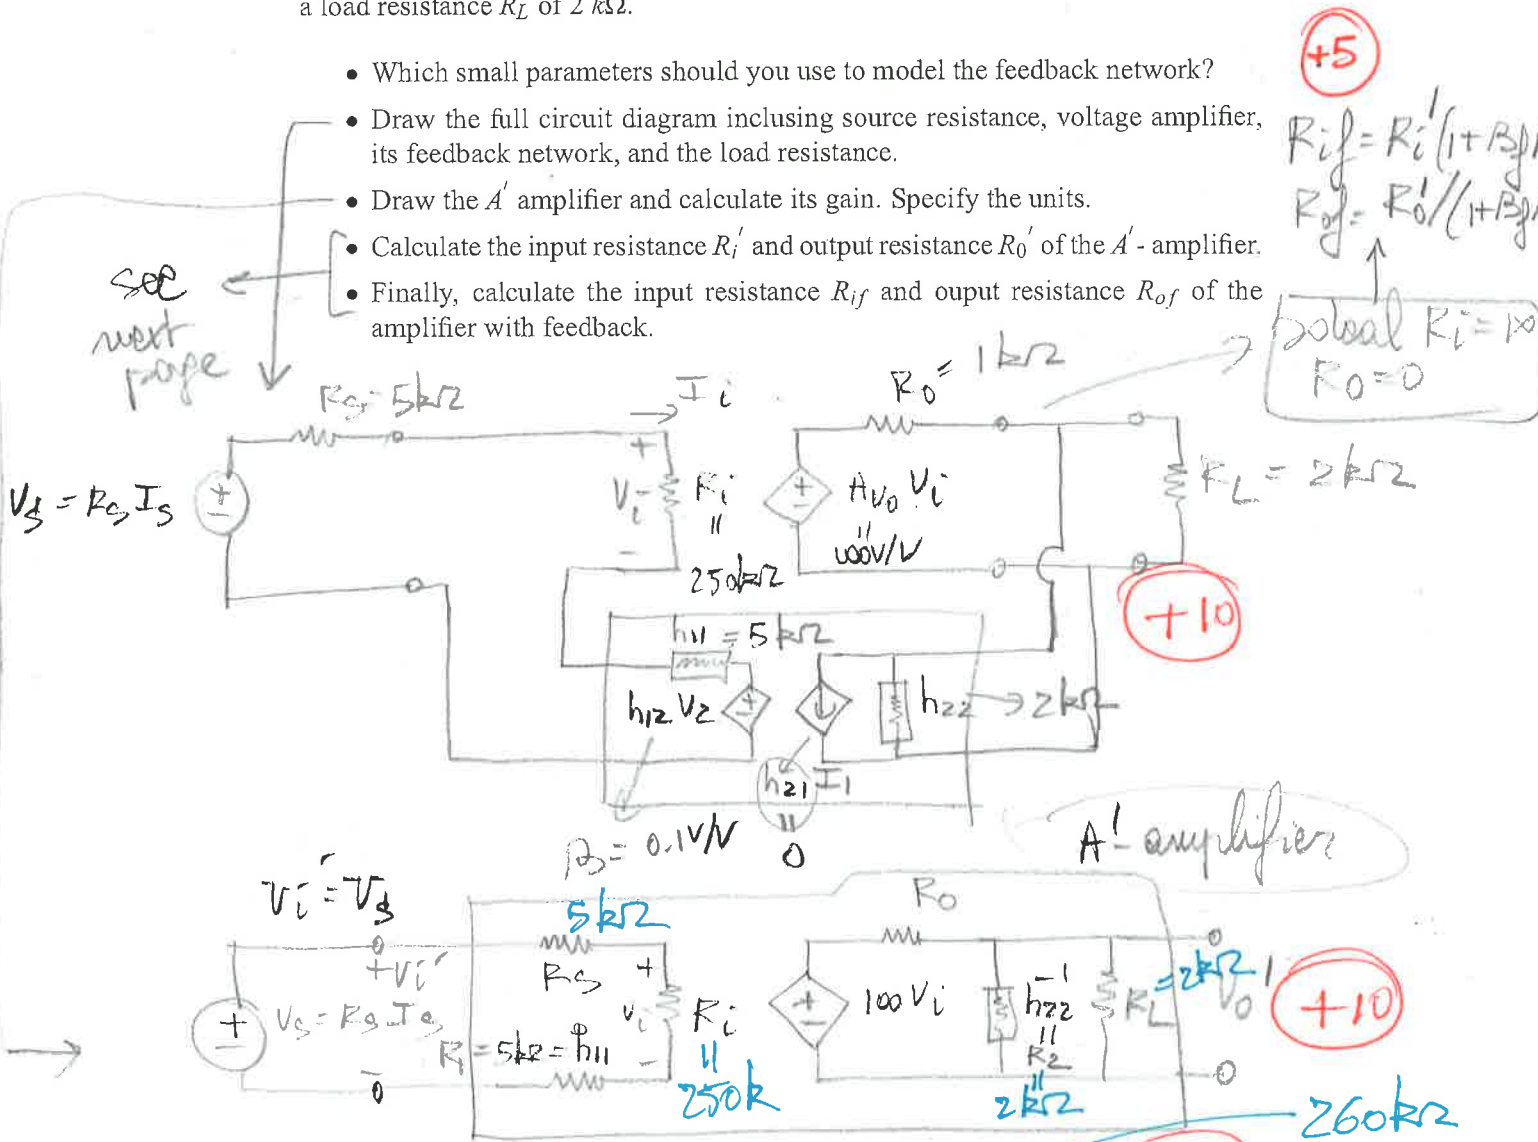 a load resistance R_L of 2 kΩ.
+5
• Which small parameters should you use to model the feedback network?
• Draw the full circuit diagram inclusing source resistance, voltage amplifier,
its feedback network, and the load resistance.
Rif = Ri'(1+βf
Rof = Ro'/(1+βf
• Draw the A' amplifier and calculate its gain. Specify the units.
• Calculate the input resistance Ri' and output resistance R0' of the A' - amplifier.
• Finally, calculate the input resistance Rif and ouput resistance Rof of the
amplifier with feedback.
see
next
page
Ri = ∞
R0 = 0
Rs = 5kΩ
Ii
Ro = 1kΩ
Vs = Rs Is
+
Vi
-
Ri
=
250kΩ
Avo Vi
=
100V/V
RL = 2kΩ
+10
h11 = 5kΩ
h12 V2
h22 → 2kΩ
h21 I1
=
0
β = 0.1V/V
A' - amplifier
Vi' = Vs
5kΩ
Rs
Ro
+Vi'
-
Vs = Rs Is
R1 = 5kΩ = h11
+
Vi
-
Ri
=
250k
100Vi
h22^-1
=
R2
=
2kΩ
RL
=2kΩ
Vo'
+10
260kΩ